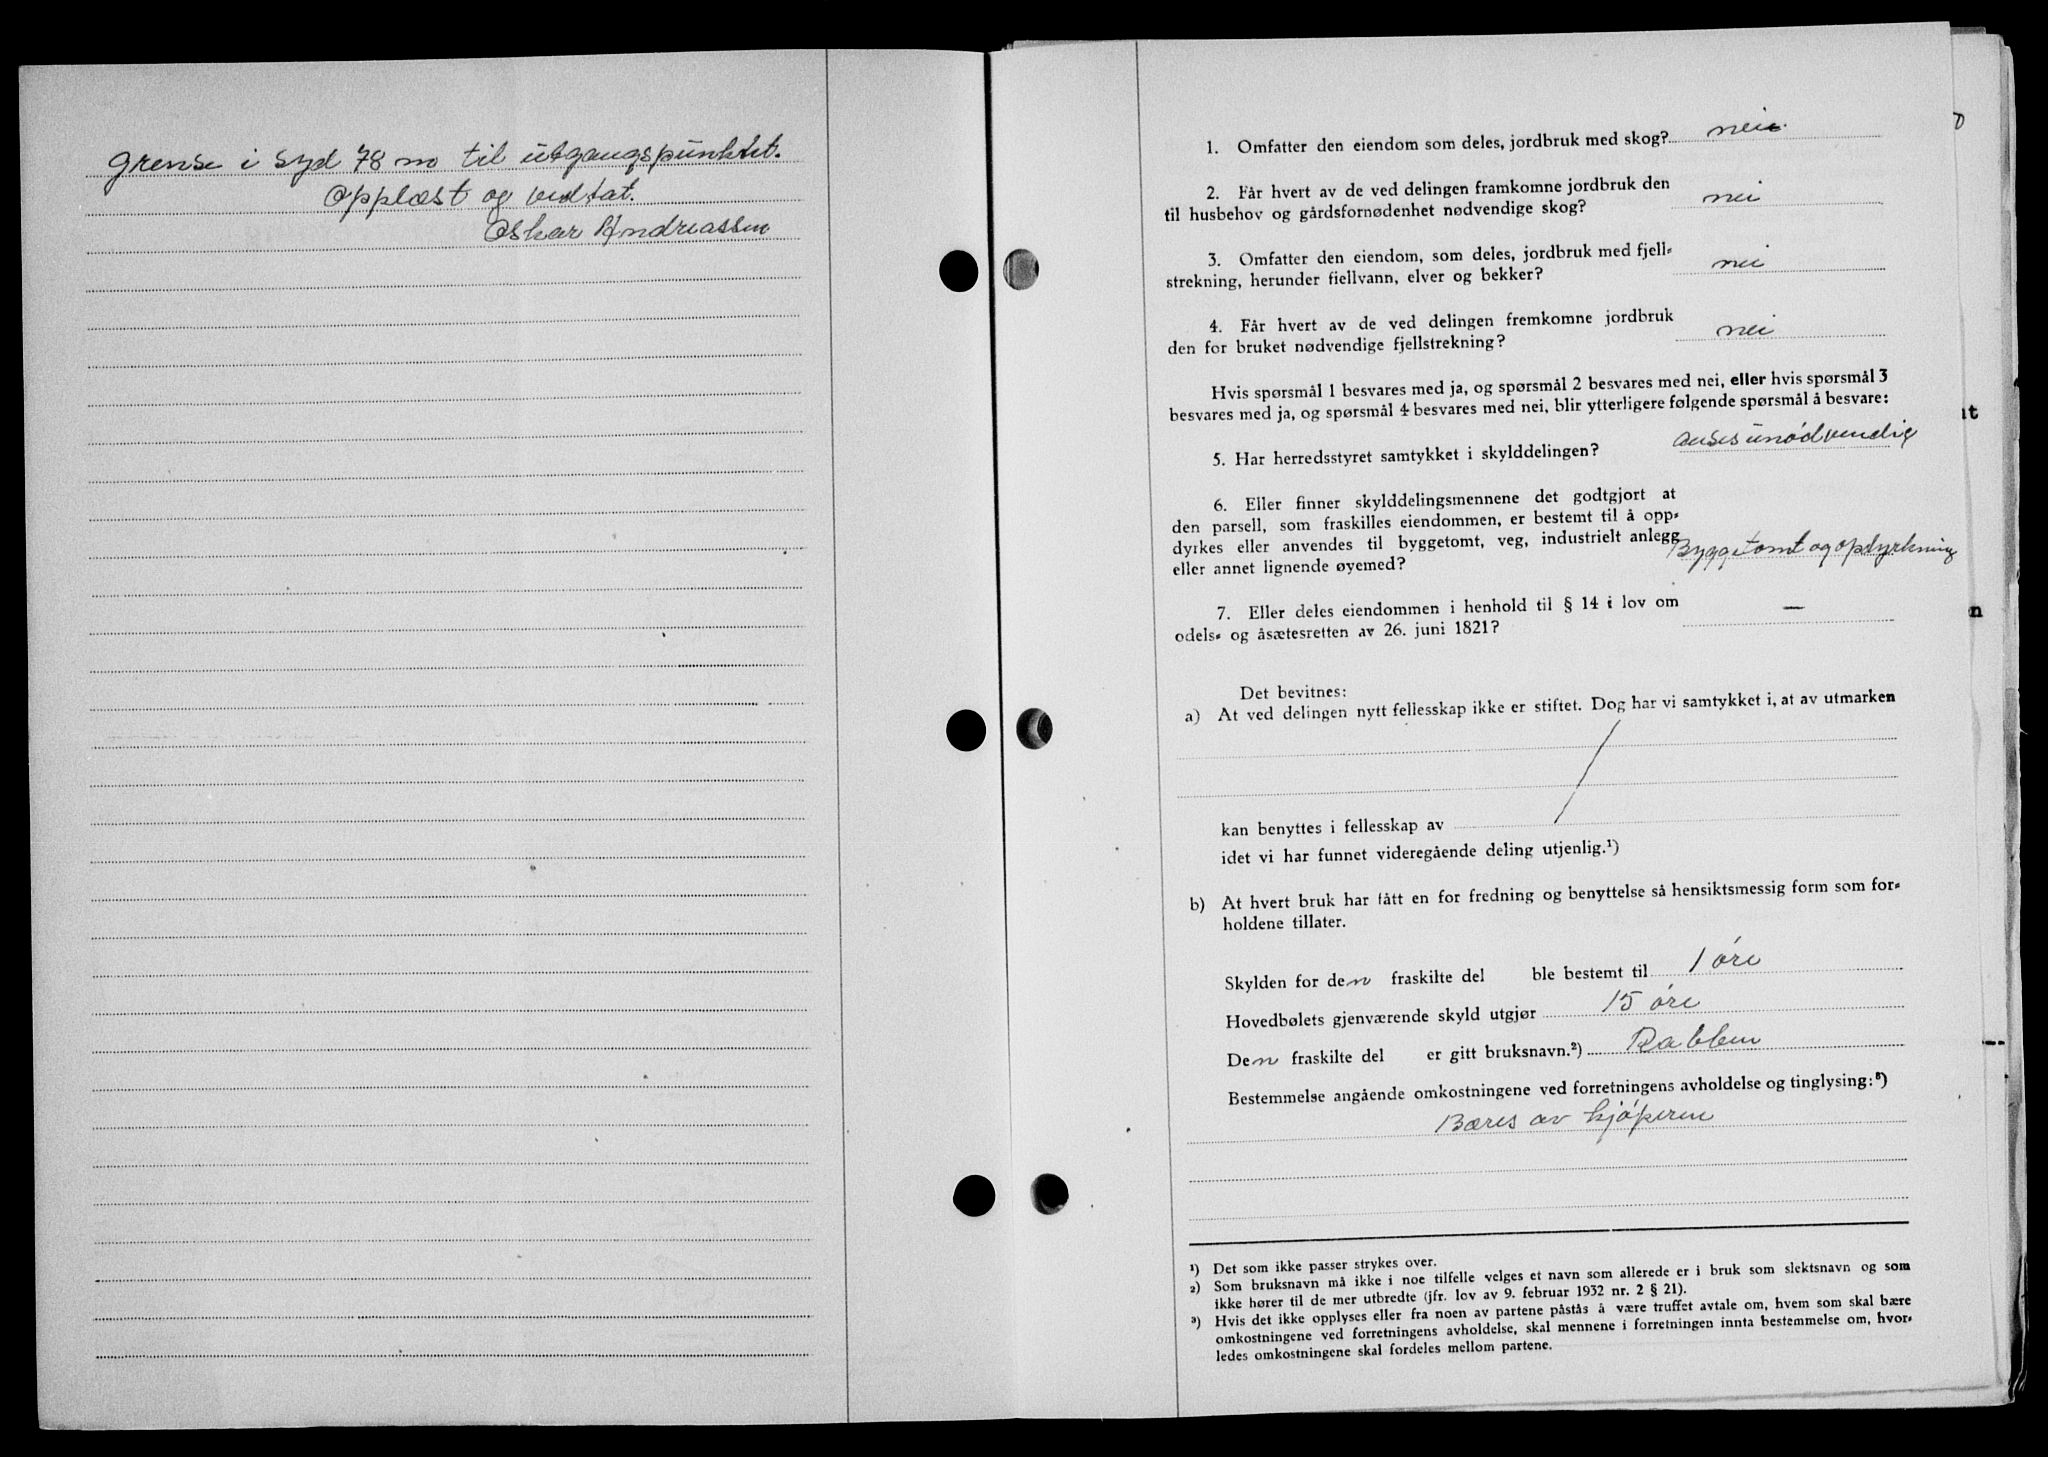 grense i syd 78 m til utgangspunktet.
Opplæst og vedtat.
Oskar Andreassen
1. Omfatter den eiendom som deles, jordbruk med skog? nei.
2. Får hvert av de ved delingen framkomne jordbruk den
til husbehov og gårdsfornødenhet nødvendige skog? nei
3. Omfatter den eiendom, som deles, jordbruk med fjell-
strekning, herunder fiellvann, elver og bekker? nei
4. Får hvert av de ved delingen fremkomne jordbruk
den for bruket nødvendige fjellstrekning? nei
Hvis spørsmål 1 besvares med ja, og spørsmål 2 besvares med nei, eller hvis spørsmål 3
besvares med ja, og spørsmål 4 besvares med nei, blir ytterligere følgende spørsmål å besvare:
5. Har herredsstyret samtykket i skylddelingen? anses unødvendig
6. Eller finner skylddelingsmennene det godtgjort at
den parsell, som fraskilles eiendommen, er bestemt til å opp-
dyrkes eller anvendes til byggetomt, veg, industrielt anlegg
eller annet lignende øyemed? Byggetomt og opdyrkning
7. Eller deles eiendommen i henhold til § 14 i lov om
odels- og åsætesretten av 26. juni 1821? —
Det bevitnes:
a) At ved delingen nytt fellesskap ikke er stiftet. Dog har vi samtykket i, at av utmarken
kan benyttes i fellesskap av
idet vi har funnet videregående deling utjenlig.¹)
b) At hvert bruk har fått en for fredning og benyttelse så hensiktsmessig form som for-
holdene tillater.
Skylden for den fraskilte del ble bestemt til 1 øre
Hovedbølets gjenværende skyld utgjør 15 øre
Den fraskilte del er gitt bruksnavn.²) Rabben
Bestemmelse angående omkostningene ved forretningens avholdelse og tinglysing:³)
Bæres av kjøperen
¹) Det som ikke passer strykes over.
²) Som bruksnavn må ikke i noe tilfelle velges et navn som allerede er i bruk som slektsnavn og som
ikke hører til de mer utbredte (jfr. lov av 9. februar 1932 nr. 2 § 21).
³) Hvis det ikke opplyses eller fra noen av partene påstås å være truffet avtale om, hvem som skal bære
omkostningene ved forretningens avholdelse, skal mennene i forretningen innta bestemmelse om, hvor-
ledes omkostningene skal fordeles mellom partene.